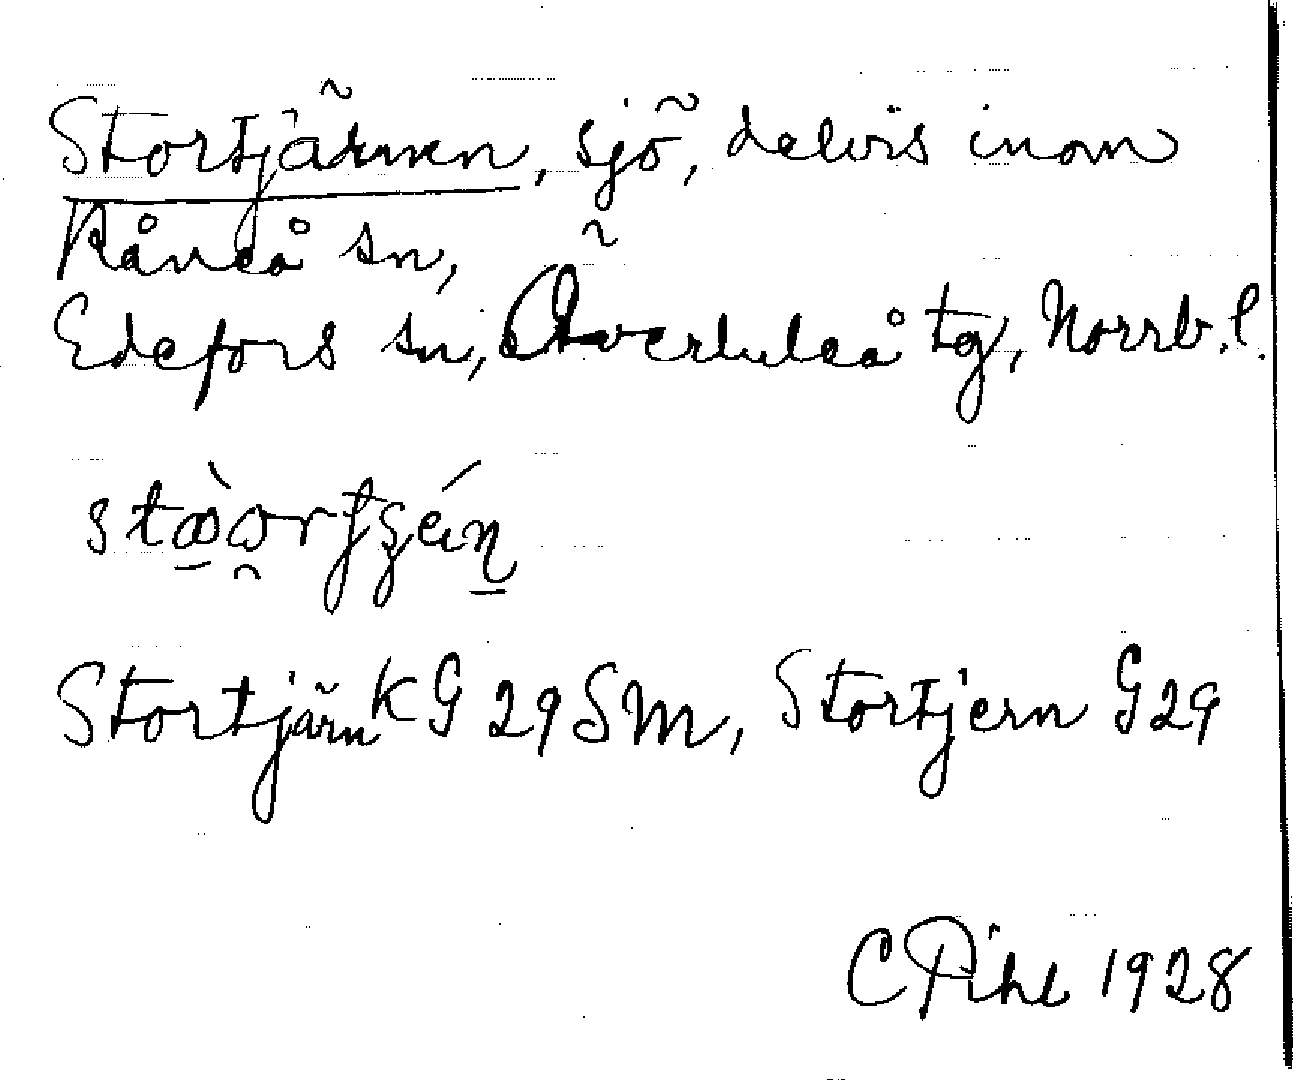 Stortjärnen, sjö, delvis inom
Råneå sn,
Edefors sn, Överluleå tg, Norrb. l.
Stortjärn KG 29 SM, Stortjern G 29
C Pihl 1928